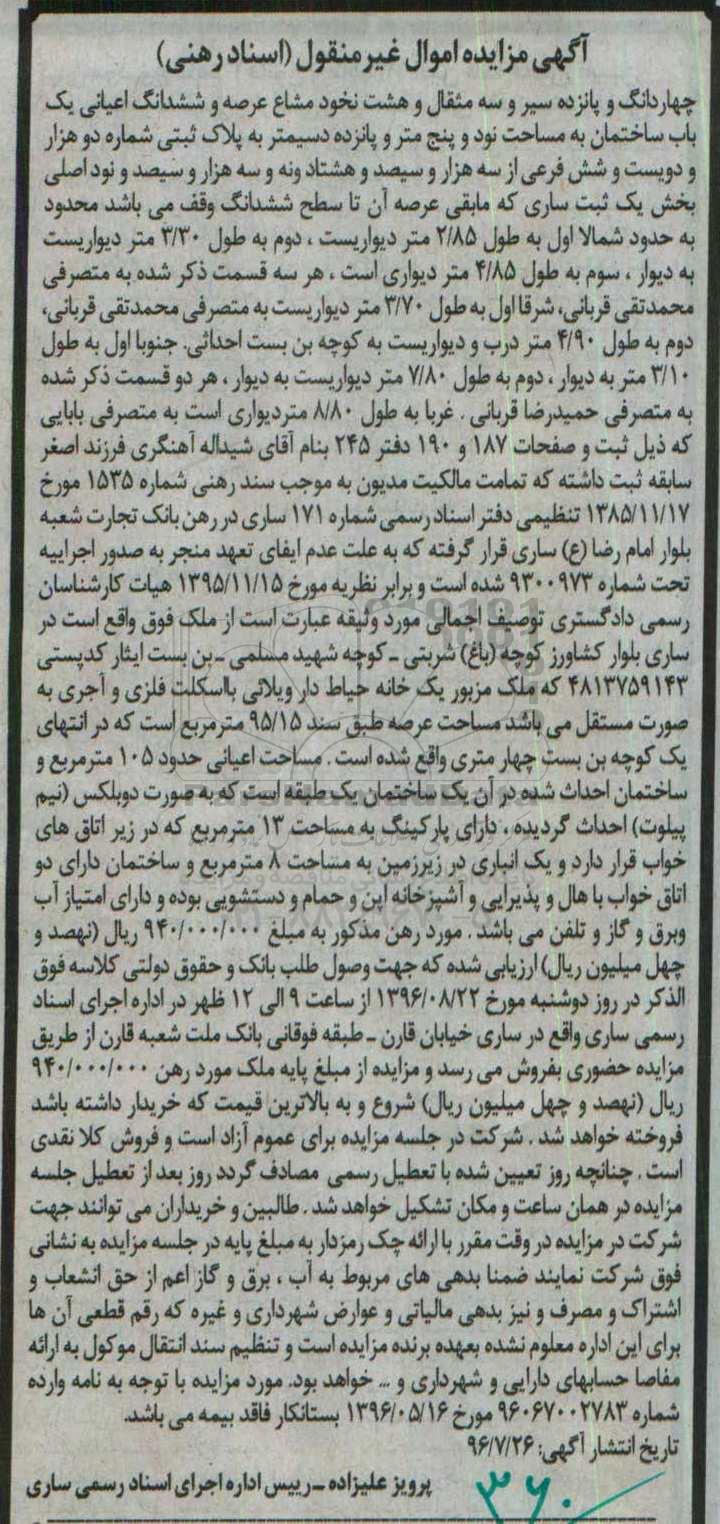 آگهی مزایده اموال غیرمنقول (اسناد رهنی)
چهاردانگ و پانزده سیر و سه مثقال و هشت نخود مشاع عرصه و ششدانگ اعیانی یک
باب ساختمان به مساحت نود و پنج متر و پانزده دسیمتر به پلاک ثبتی شماره دو هزار
و دویست و شش فرعی از سه هزار و سیصد و هشتاد ونه و سه هزار و سیصد و نود اصلی
بخش یک ثبت ساری که مابقی عرصه آن تا سطح ششدانگ وقف می باشد محدود
به حدود شمالا اول به طول ۲/۸۵ متر دیواریست ، دوم به طول ۳/۳۰ متر دیواریست
به دیوار ، سوم به طول ۴/۸۵ متر دیواری است ، هر سه قسمت ذکر شده به متصرفی
محمدتقی قربانی، شرقا اول به طول ۳/۷۰ متر دیواریست به متصرفی محمدتقی قربانی،
دوم به طول ۴/۹۰ متر درب و دیواریست به کوچه بن بست احداثی. جنوبا اول به طول
۳/۱۰ متر به دیوار ، دوم به طول ۷/۸۰ متر دیواریست به دیوار ، هر دو قسمت ذکر شده
به متصرفی حمیدرضا قربانی . غربا به طول ۸/۸۰ متردیواری است به متصرفی بابایی
که ذیل ثبت و صفحات ۱۸۷ و ۱۹۰ دفتر ۲۴۵ بنام آقای شیداله آهنگری فرزند اصغر
سابقه ثبت داشته که تمامت مالکیت مدیون به موجب سند رهنی شماره ۱۵۳۵ مورخ
۱۳۸۵/۱۱/۱۷ تنظیمی دفتر اسناد رسمی شماره ۱۷۱ ساری در رهن بانک تجارت شعبه
بلوار امام رضا (ع) ساری قرار گرفته که به علت عدم ایفای تعهد منجر به صدور اجراییه
تحت شماره ۹۳۰۰۹۷۳ شده است و برابر نظریه مورخ ۱۳۹۵/۱۱/۱۵ هیات کارشناسان
رسمی دادگستری توصیف اجمالی مورد وثیقه عبارت است از ملک فوق واقع است در
ساری بلوار کشاورز کوچه (باغ) شربتی ـ کوچه شهید مسلمی ـ بن بست ایثار کدپستی
۴۸۱۳۷۵۹۱۴۳ که ملک مزبور یک خانه حیاط دار ویلائی بااسکلت فلزی و آجری به
صورت مستقل می باشد مساحت عرصه طبق سند ۹۵/۱۵ مترمربع است که در انتهای
یک کوچه بن بست چهار متری واقع شده است . مساحت اعیانی حدود ۱۰۵ مترمربع و
ساختمان احداث شده در آن یک ساختمان یک طبقه است که به صورت دوبلکس (نیم
پیلوت) احداث گردیده ، دارای پارکینگ به مساحت ۱۳ مترمربع که در زیر اتاق های
خواب قرار دارد و یک انباری در زیرزمین به مساحت ۸ مترمربع و ساختمان دارای دو
اتاق خواب با هال و پذیرایی و آشپزخانه اپن و حمام و دستشویی بوده و دارای امتیاز آب
وبرق و گاز و تلفن می باشد . مورد رهن مذکور به مبلغ ۹۴۰/۰۰۰/۰۰۰ ریال (نهصد و
چهل میلیون ریال) ارزیابی شده که جهت وصول طلب بانک و حقوق دولتی کلاسه فوق
الذکر در روز دوشنبه مورخ ۱۳۹۶/۰۸/۲۲ از ساعت ۹ الی ۱۲ ظهر در اداره اجرای اسناد
رسمی ساری واقع در ساری خیابان قارن ـ طبقه فوقانی بانک ملت شعبه قارن از طریق
مزایده حضوری بفروش می رسد و مزایده از مبلغ پایه ملک مورد رهن ۹۴۰/۰۰۰/۰۰۰
ریال (نهصد و چهل میلیون ریال) شروع و به بالاترین قیمت که خریدار داشته باشد
فروخته خواهد شد . شرکت در جلسه مزایده برای عموم آزاد است و فروش کلا نقدی
است . چنانچه روز تعیین شده با تعطیل رسمی مصادف گردد روز بعد از تعطیل جلسه
مزایده در همان ساعت و مکان تشکیل خواهد شد . طالبین و خریداران می توانند جهت
شرکت در مزایده در وقت مقرر با ارائه چک رمزدار به مبلغ پایه در جلسه مزایده به نشانی
فوق شرکت نمایند ضمنا بدهی های مربوط به آب ، برق و گاز اعم از حق انشعاب و
اشتراک و مصرف و نیز بدهی مالیاتی و عوارض شهرداری و غیره که رقم قطعی آن ها
برای این اداره معلوم نشده بعهده برنده مزایده است و تنظیم سند انتقال موکول به ارائه
مفاصا حسابهای دارایی و شهرداری و ... خواهد بود. مورد مزایده با توجه به نامه وارده
شماره ۹۶۰۶۷۰۰۲۷۸۳ مورخ ۱۳۹۶/۰۵/۱۶ بستانکار فاقد بیمه می باشد.
تاریخ انتشار آگهی: ۹۶/۷/۲۶
پرویز علیزاده ـ رییس اداره اجرای اسناد رسمی ساری
۳۶۰